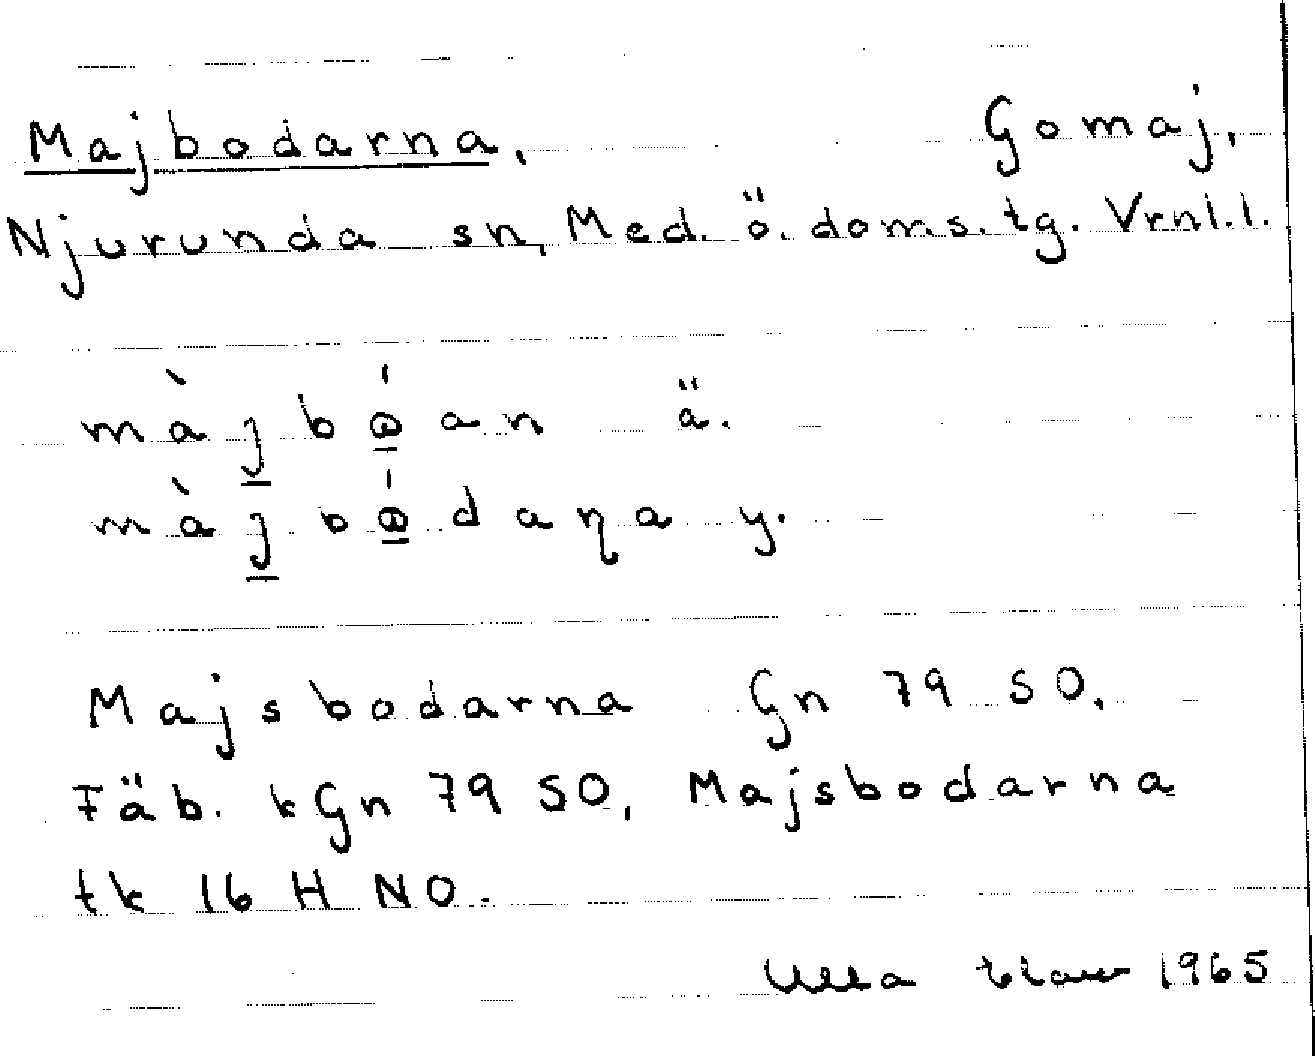 Majbodarna. Gomaj.
Njurunda sn, Med. ö. doms. tg. Vrnl.l.
màȷ̱bώ̱an ä.
màȷ̱bώ̱daɳa y.
Majsbodarna Gn 79 SO.
Fäb. kGn 79 SO, Majsbodarna
tk 16 H NO.
Ulla 1965